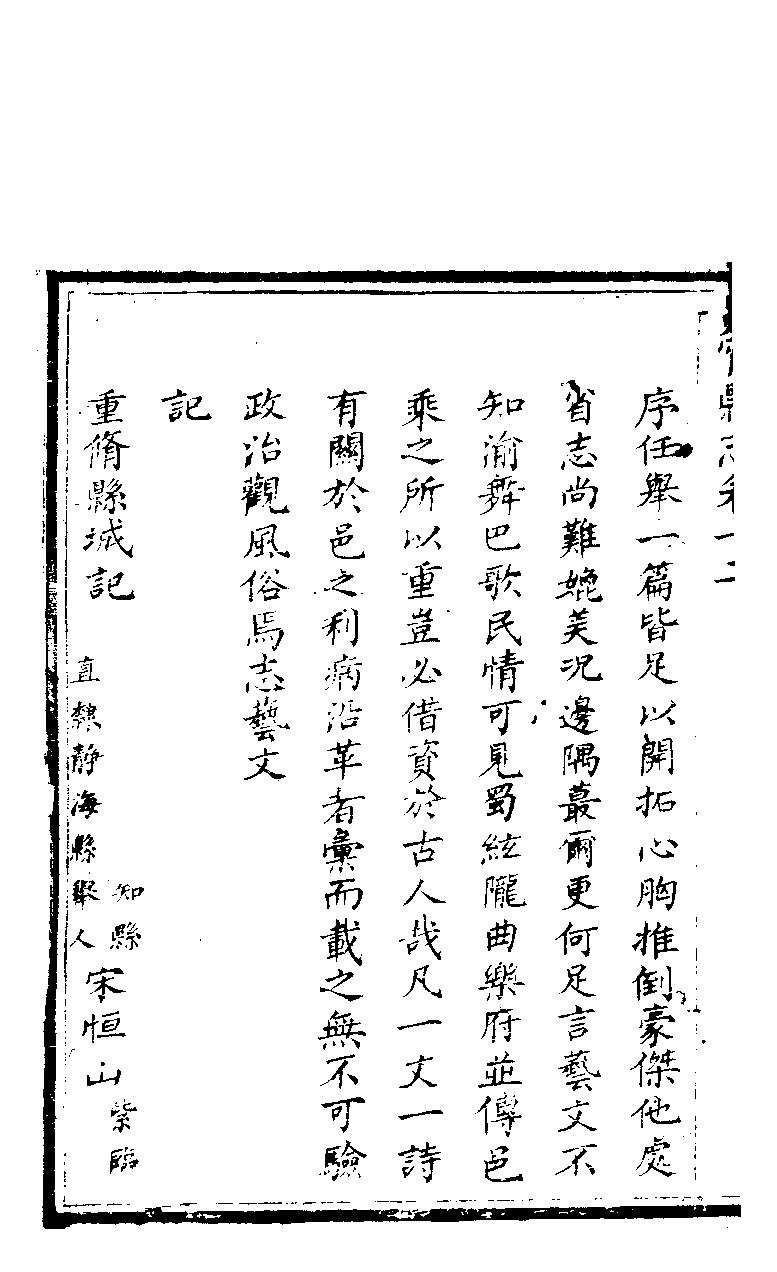 縣志卷十二
序任舉一篇皆足以開拓心胸推倒豪傑他處
省志尚難媲美況邊隅蕞爾更何足言藝文不
知渝舞巴歌民情可見蜀絃隴曲樂府並傳邑
乘之所以重豈必借資於古人哉凡一文一詩
有關於邑之利病沿革者彙而載之無不可驗
政治觀風俗焉志藝文
記
重脩縣城記 知縣 直隸靜海縣舉人 宋恒山 紫臨